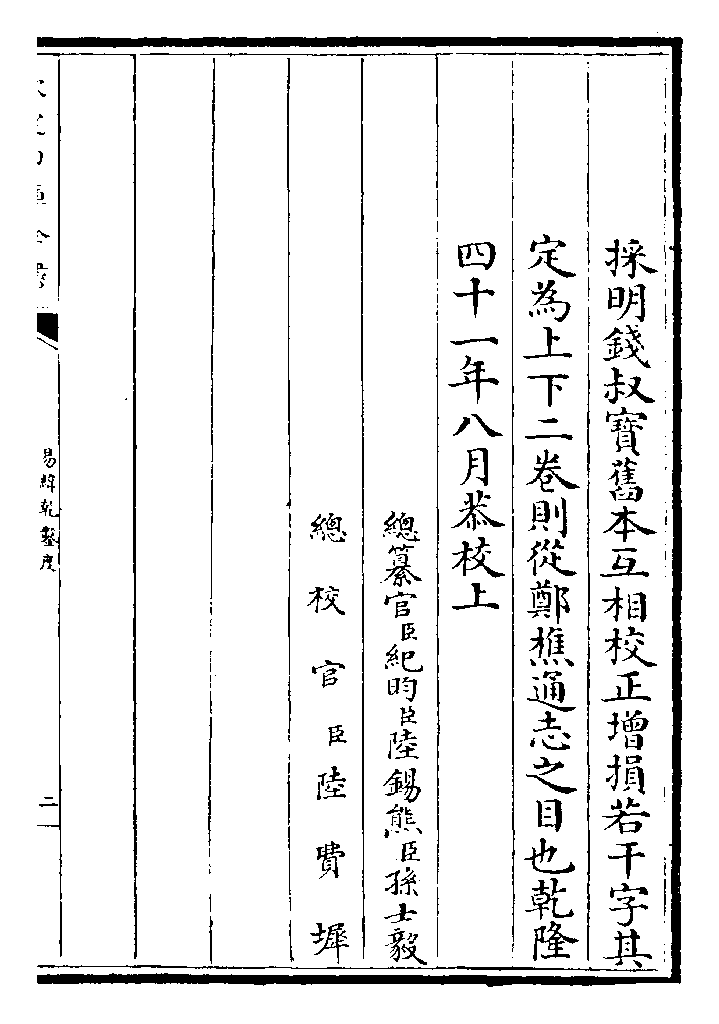 採明錢叔寶舊本互相校正增損若干字其
定為上下二卷則從鄭樵通志之目也乾隆
四十一年八月恭校上
總纂官臣紀昀臣陸錫熊臣孫士毅
總校官臣陸費墀
易緯乾鑿度
二